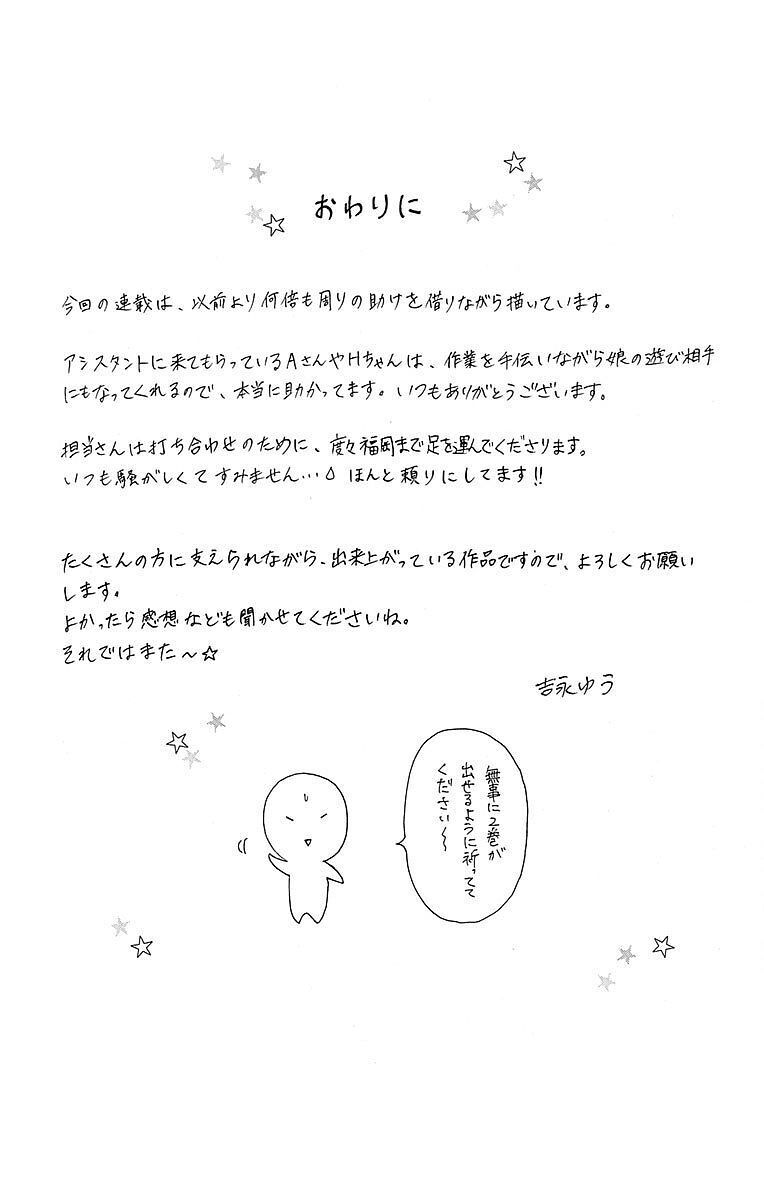 おわりに
今回の連載は、以前より何倍も周りの助けを借りながら描いています。
アシスタントに来てもらっているAさんやHちゃんは、作業を手伝いながら娘の遊び相手
にもなってくれるので、本当に助かってます。いつもありがとうございます。
担当さんは打ち合わせのために、度々福岡まで足を運んでくださります。
いつも騒がしくてすみません… ほんと頼りにしてます!!
たくさんの方に支えられながら、出来上がっている作品ですので、よろしくお願い
します。
よかったら感想なども聞かせてくださいね。
それではまた～☆
吉永ゆう
無事に2巻が
出せるように祈ってて
ください～